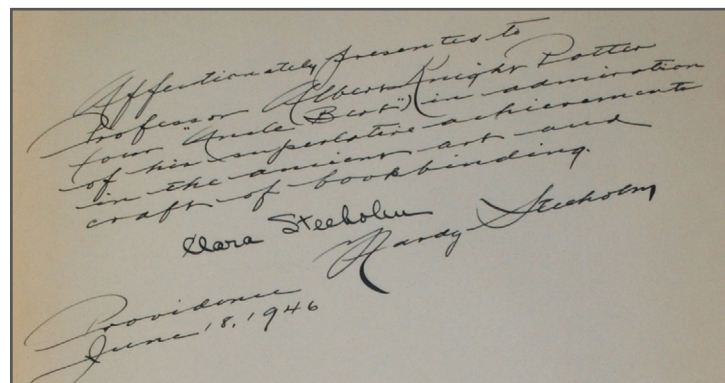 Affectionately presented to
Professor Albert Knight Potter
(our "Uncle Bert") in admiration
of his superlative achievements
in the ancient art and
craft of bookbinding.
Clara Steeholm
Hardy Steeholm
Providence
June 18, 1946